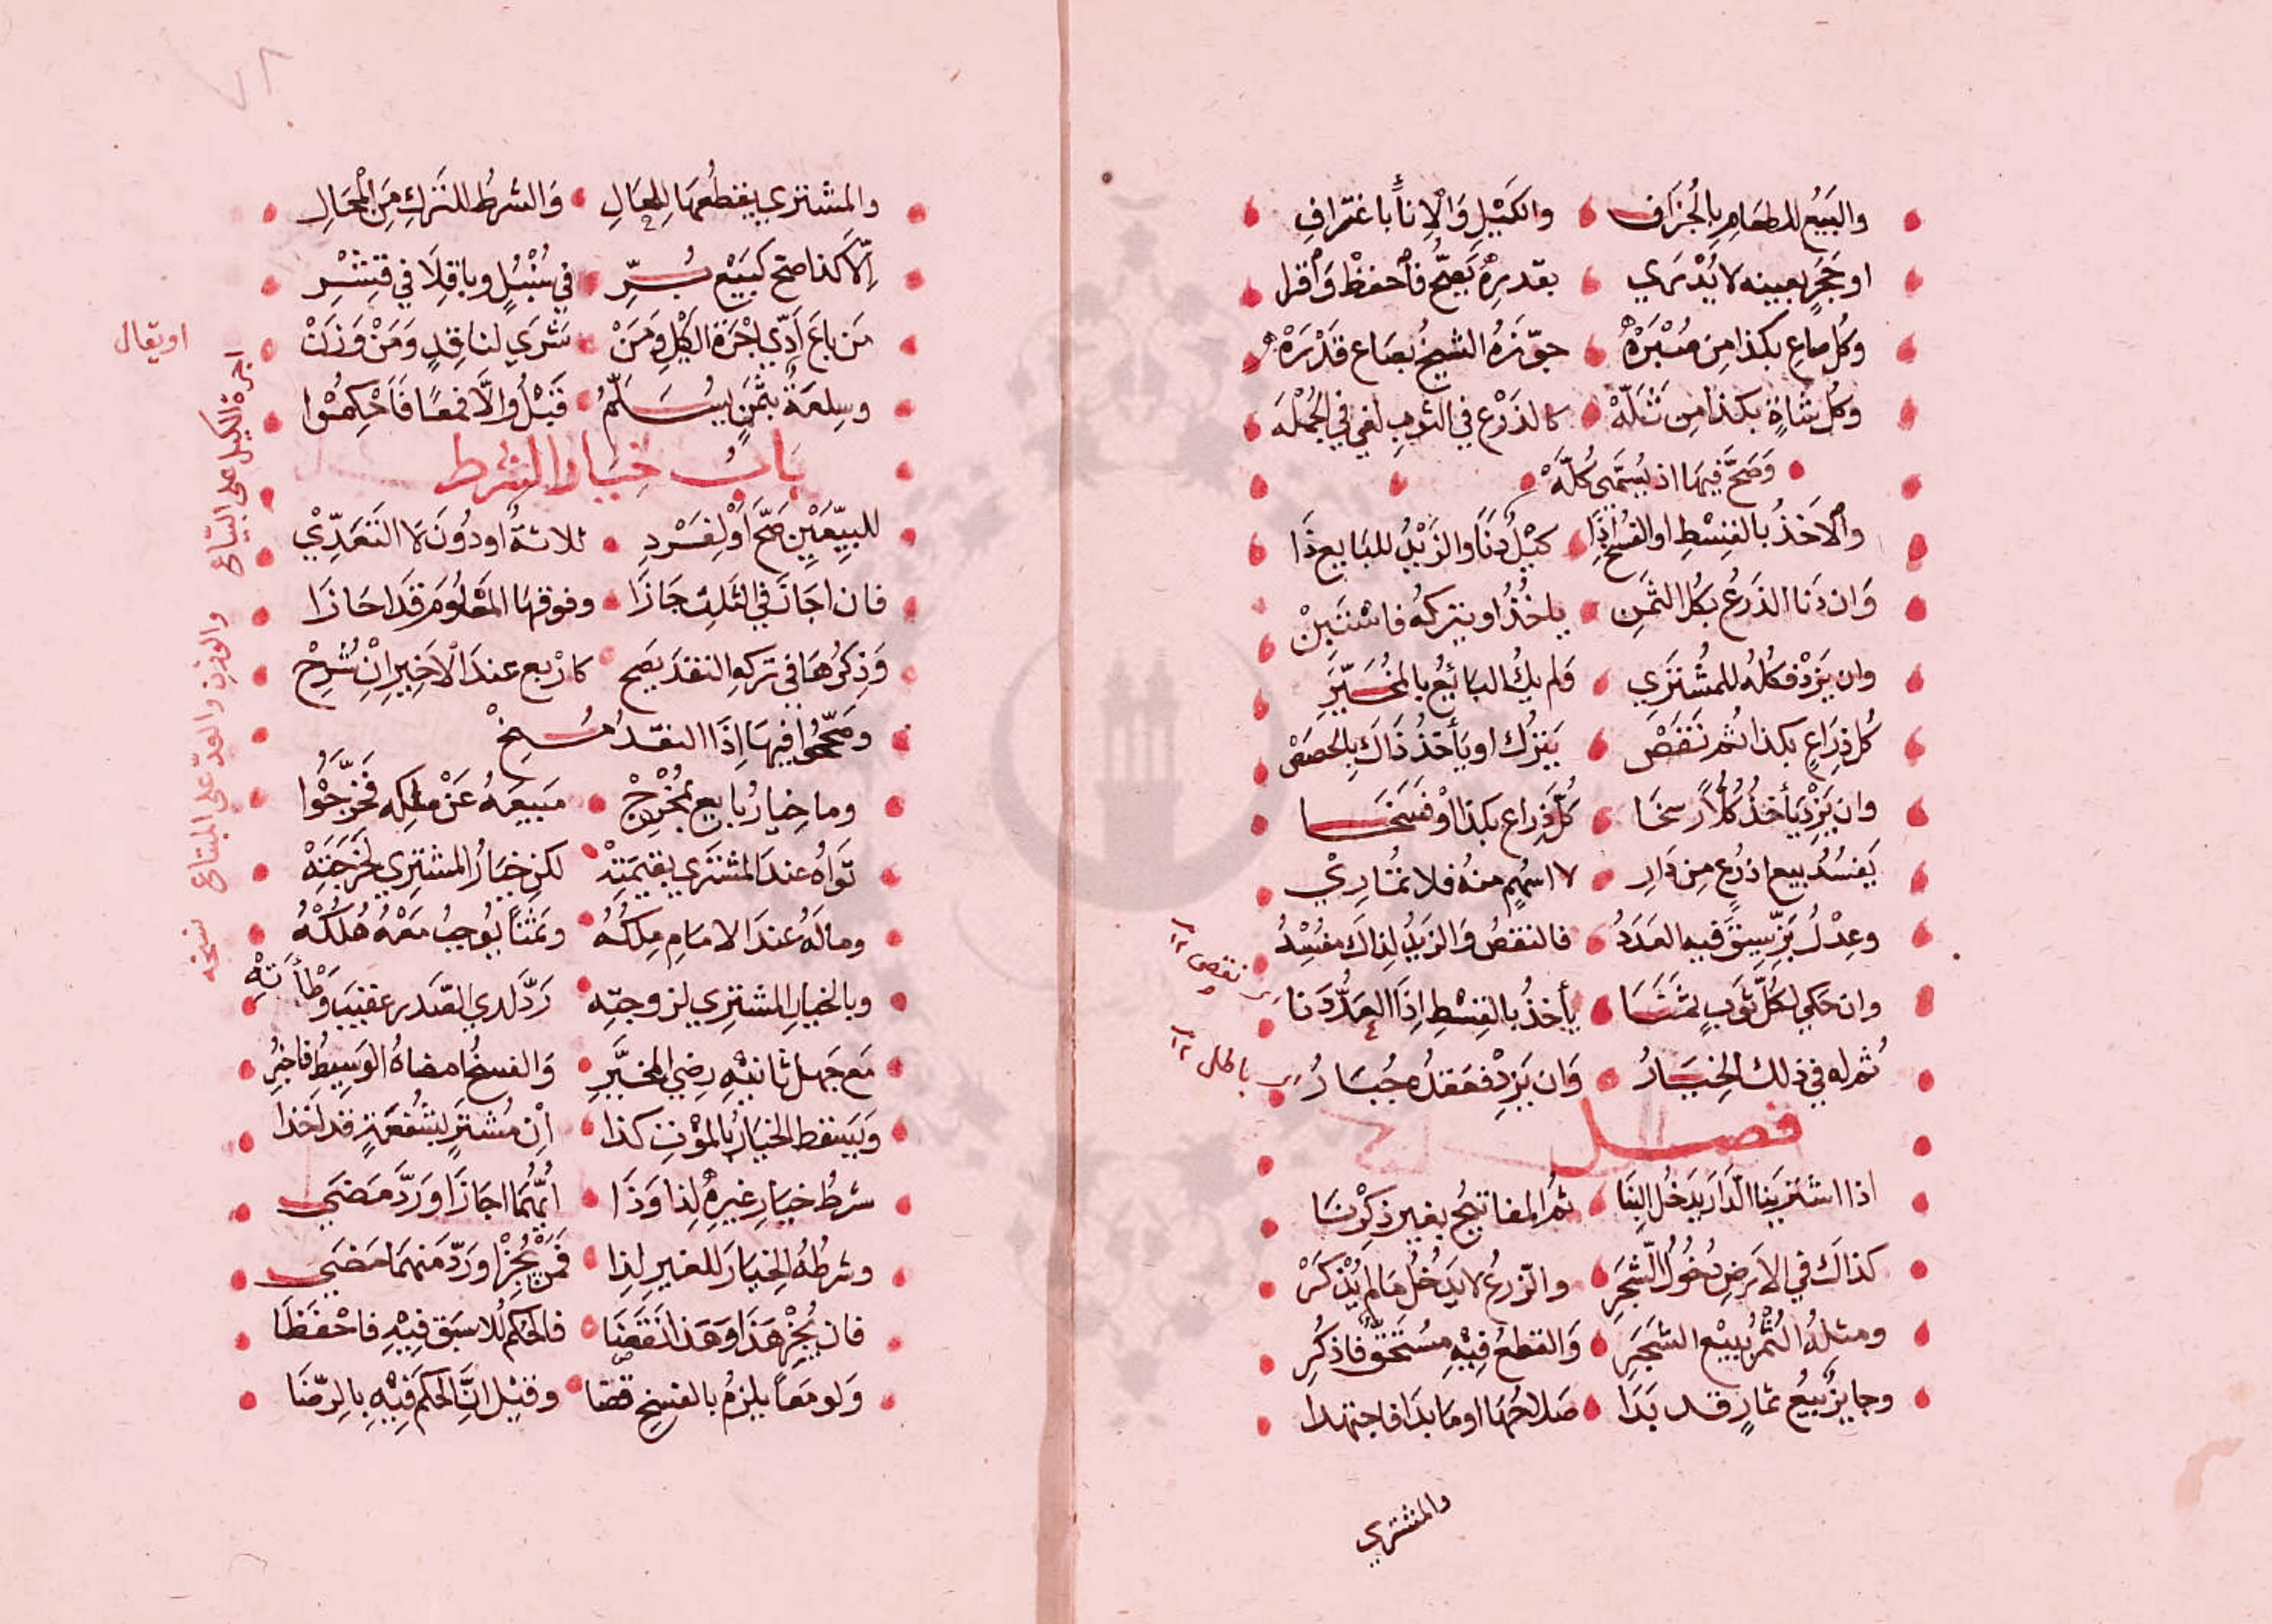 والبَيْعُ للطعَامِ بِالجُزَافِ والكَيْلِ وَالْاِنَاءِ بَاغتِرافِ
او حَجَرٍ بعينه لا يُدْرَي بقدرِهِ يَصِحُّ فاحفظْ وَاقرا
وَكُل صاعٍ بكذا مِن صُبْرَهْ جوّزَهُ الشيخُ بصَاعٍ قَدْرَهْ
وَكُل شاةٍ بكذا مِن ثَلَّهْ كالذَرْعِ في الثوبِ لغي في الجُمْلَه
وَصَحَّ فيهَا اذ يُسَمَّى كُلَّهْ
والاَخذُ بالقِسْطِ او الفسْخُ اِذَا كَيْلٌ دَنَا والزَيْدُ للبَايع ذَا
وَان دَنَا الذَرعُ بكُل الثمَنِ ياخُذُ او يتركهُ فاسْتَبِنْ
وان يَزِدْ فكُلهُ للمُشْتَرِي وَلم يكُ البَائِعُ بالمُخَيَّرِ
كُل ذِرَاعٍ بكذا ثُم نَقَصْ يَترُك او يَأخُذُ ذَاكَ بِالحِصَصْ
وان يَزِدْ يَأخذُ كُلًّا رسخَا كُلَّ ذِراعٍ بكذا اوْ فَسَخَا
يَفسُدُ بيع اذرُعٍ مِن دَارِ لا اسْهُمٍ منهُ فلا تُمَارِيْ
وعِدْلُ بَزٍّ سِيقَ فيه العَدَدُ فالنقصُ وَالزيدُ لِذاكَ مفْسِدُ
وان حَكي لكُلِّ ثَوبٍ ثمَنَا يأخذُ بالقِسْطِ اِذَا العَدُّ دَنا
نقص
ثُم له في ذلك الخِيَارُ وَان يَزِدْ فعَقدُه جُبَارُ
باطل
فصل
اذا اشترينا الدَّارَ يَدخُل البِنَا ثمُ المفاتيحُ بغيرِ ذكْرِنَا
كذاكَ في الاَرضِ دُخُولُ الشَّجَرِ والزرعُ لا يَدْخُلُ مَا لم يُذْكَرْ
ومثلهُ الثَّمْرُ ببيْع الشجَرِ وَالقطعُ فِيْهِ مُسْتَحَقٌ فَاذكُرِ
وجايزٌ بَيعُ ثمارٍ قد بَدَا صَلاحُهَا او مَا بَدَا فاجتهدا
والمشتري
والمشتري يقطعُهَا للحَالِ وَالشرطُ للتَركِ مِنَ الْمحَالِ
اِلّا كذا صَح كبَيْع بُرِّ في سُنْبُلٍ وباقِلَا في قِشْرِ
مَن باعَ اَدّي اُجْرَةَ الكَيْلِ وَمَنْ شَرَي لناقِدٍ وَمَنْ وَزَنْ
وسِلعَةٌ بثمَنٍ يُسَلَّمُ قَبْلُ وَالَّا فمعًا فَاحْكِمُوا
او يقال
اجرة الكيل على البيّاع والوزن والعدّ على المبتاع نسخه
بابُ خيار الشرط
للبيِّعَيْنِ صَحَّ اَوْ لِفَرْدِ ثلاثةٌ اودُونَهَا لا التَعَدِّيْ
فان اجَازَ في الثلاث جَازَا وفوقهَا المَعْلُومَ قَدَ احَازَا
وَذِكرُهَا في تركهِ النقدَ يصَح كاربع عندَ الْاَخِيرِ اِنْ شُرِحْ
وصَحَّحُوا فيهَا اِذَا النقدُ مُسِخْ
وما خِيارُ بَايعٍ بمُخْرِجْ مَبيعِهُ عَنْ مِلكِه فَخرِّجُوا
تَوَاهُ عندَ المشتَرِي بِقيمَتِهْ لكن خيَارُ المشتِرِي لخرجَتِهْ
وما لَهُ عندَ الامَامِ مِلكُهُ وثمَنًا يُوجِبُ مَعْهُ هُلْكُهُ
وبالخيارِ المشتري لزوجتِه رَدَّ لدي الصَدرِ عقيبَ وَطْأَتِهْ
مَع جَهل ثانيْهِ رِضي المخيَّرِ وَالفسخُ امضاهُ الوَسِيطُ فاخبُرِ
وَيَسقط الخيَارُ بِالمَوْتِ كذا اِن مُشترٍ بشُفعَةٍ قد اَخذا
شرطُ خيَارِ غيرِهِ لِذا وَذَا ايُّهُمَا اجَازَ اوَرَدَّ مَضَي
وشرطُهُ الخيَارَ للغيرِ لِذا فَمَنْ يُجِزْ اوَرَدّ منهمَا مَضَي
فان يُجِزْ هَذا وَهَذا نَقَضَا فالحُكم للاسبَق فِيْهِ فاحْفَظَا
وَلو معًا يلزمُ بالفسخِ قضا وقيْل انَّ الحكمَ فِيْهِ بالِرضَا